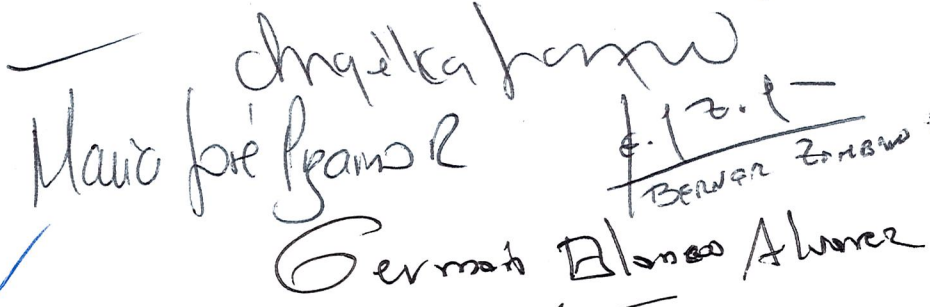 Angélica Lozano
María José Pizarro R
BERNER ZAMBRANO
Germán Blanco Alvarez